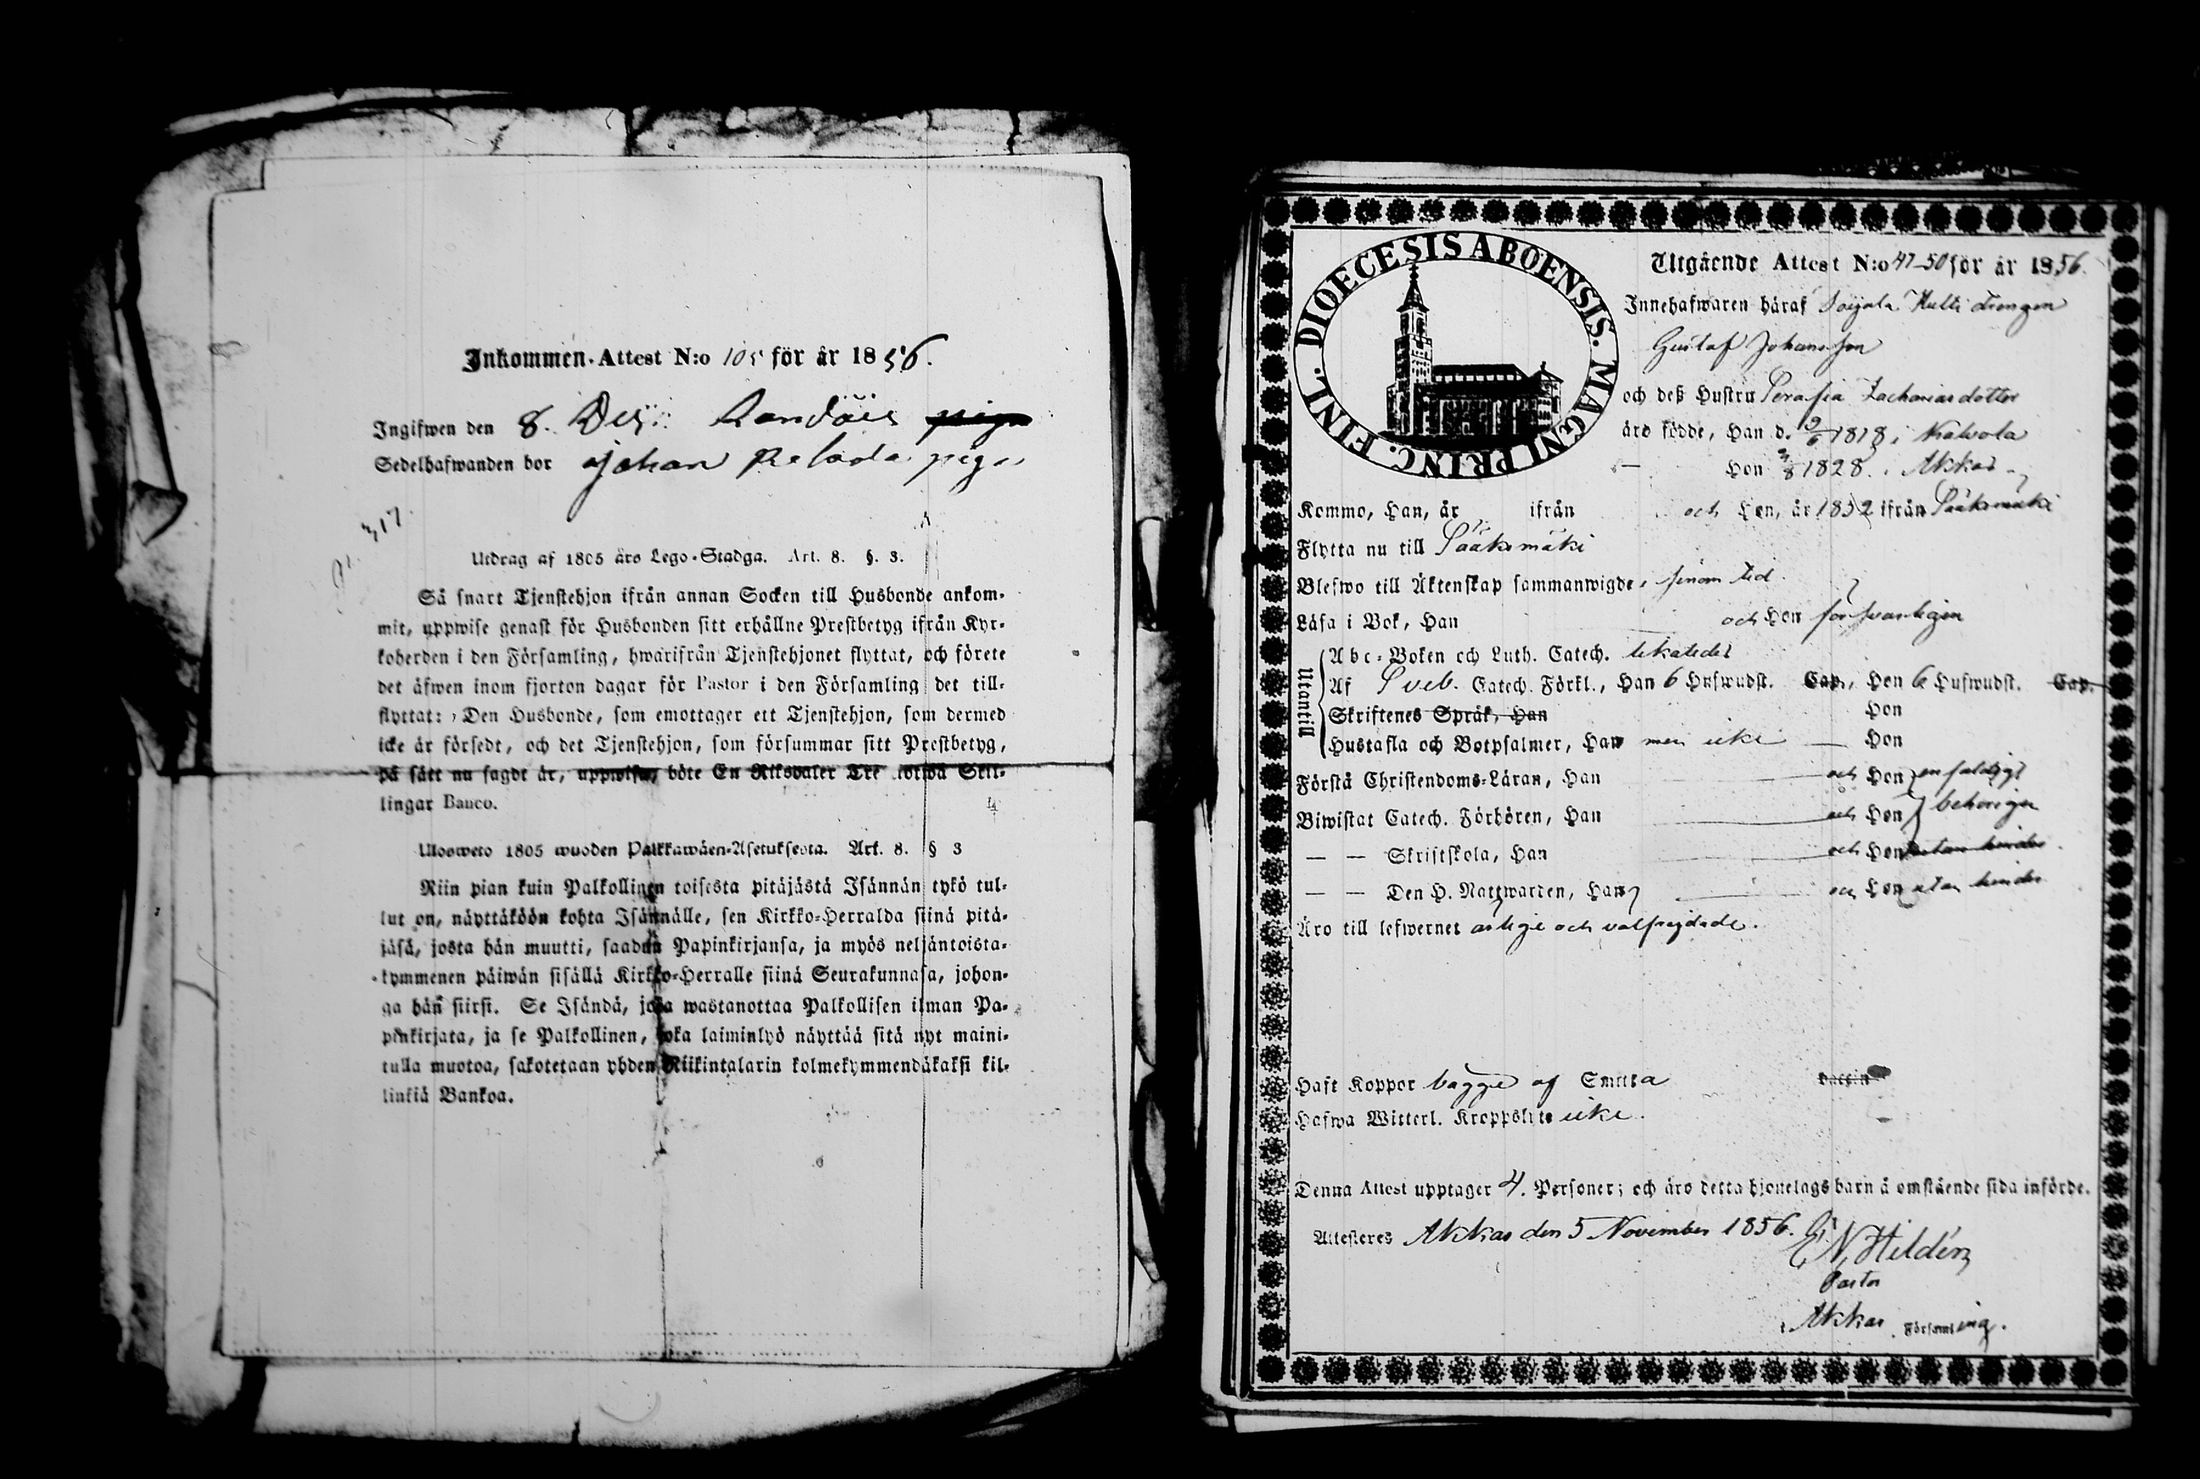 Inkommen-Attest N:o 105 för år 1856.
Ingifwen den 8. Dec:
Sedelhafwanden bor Johan
Pag. 317.
Utdrag af 1805 års Lego-Stadga. Art. 8. §. 3.
Så snart Tjenstehjon ifrån annan Socken till Husbonde ankom-
mit, uppwise genast för Husbonden sitt erhållne Prestbetyg ifrån Kyr-
koherden i den Församling, hwarifrån Tjenstehjonet flyttat, och förete
det äfwen inom fjorton dagar för Pastor i den Församling det till-
flyttat: Den Husbonde, som emottager ett Tjenstehjon, som dermed
icke är försedt, och det Tjenstehjon, som försummar sitt Prestbetyg,
på sätt nu sagdt är, uppwisa, böte En Riksdaler Tretiotwå Skil-
lingar Banco.
Ulosweto 1805 wuoden Palkkawäen-Asetuksesta. Art. 8. § 3
Niin pian kuin Palkollinen toisesta pitäjästä Isännän tykö tul-
lut on, näyttäköön kohta Isännälle, sen Kirkko-Herralda siinä pitä-
jäsä, josta hän muutti, saadun Papinkirjansa, ja myös neljäntoista-
kymmenen päiwän sisällä Kirkko-Herralle siinä Seurakunnasa, johon-
ga hän siirsi. Se Isändä, joka wastanottaa Palkollisen ilman Pa-
pinkirjata, ja se Palkollinen, joka laiminlyö näyttää sitä nyt maini-
tulla muotoa, sakotetaan yhden Riikintalarin kolmekymmendäkaksi kil-
linkiä Bankoa.
DIOECESIS ABOENSIS. MAGNI PRINC. FINL.
Utgående Attest N:o 47-50 för år 1856.
Innehafwaren häraf Drengen
Gustaf Johansson
och deß Hustru Serafia Zachariasdotter
äro födde, Han d. 9/6 1818 i Kalvola
Hon 1828. i Akkas
Kommo, Han, år ifrån och Hon, år 1852 ifrån Sääksmäki
Flytta nu till Sääksmäki
Blefwo till Äktenskap sammanwigde, sinom tid.
Läsa i Bok, Han och Hon försvarligen
Utantill
Abc-Boken och Luth. Catech. likaledes
Af Sveb. Catech. Förkl., Han 6 Hufwudst. Cap., Hon 6 Hufwudst. Cap.
Skriftenes Språk, Han Hon
Hustafla och Botpsalmer, Han men icke — Hon
Förstå Christendoms-Läran, Han och Hon enfaldigt
Biwistat Catech. Förhören, Han och Hon behörigen
— — Skriftskola, Han och Hon utan hinder
— — Den H. Nattwarden, Han och Hon utan hinder
Äro till lefwernet ärlige och välfrejdade.
Haft Koppor bägge af Smitta Vaccin
Hafwa Witterl. Kroppslyte icke.
Denna Attest upptager 4. Personer; och äro detta hjonelags barn å omstående sida införde.
Attesteres Akkas den 5 November 1856.
Hildén
Pastor
i Akkas Församling.